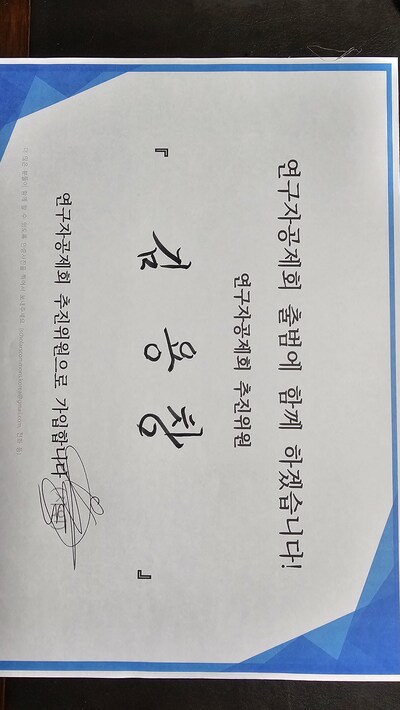 연구자공제회 출범에 함께 하겠습니다!
연구자공제회 추진위원
『 김 용 창 』
연구자공제회 추진위원으로 가입합니다